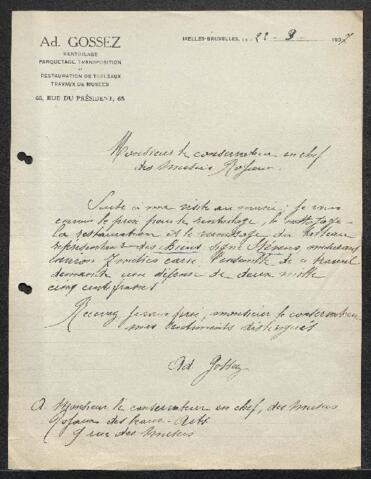 Ad. GOSSEZ
RENTOILAGE
PARQUETAGE, TRANSPOSITION
ET
RESTAURATION DE TABLEAUX
TRAVAUX DE MUSÉES
65, RUE DU PRÉSIDENT, 65
IXELLES-BRUXELLES, LE 22-9-1937
Monsieur le conservateur en chef
des musées Royaux.
Suite à ma visite au musée; je vous
le prix pour le rentoilage, le nettoyage
la restauration et le du tableau
représentant des chiens signé Stevens, mesurant
environ mètres carré l'ensemble de ce travail
demande une dépense de deux mille
cinq cents francs
Recevez je vous prie, monsieur le conservateur
mes sentiments distingués
Ad Gossez
A. Monsieur le conservateur en chef, des musées
Royaux des beaux-Arts
9 rue des musées